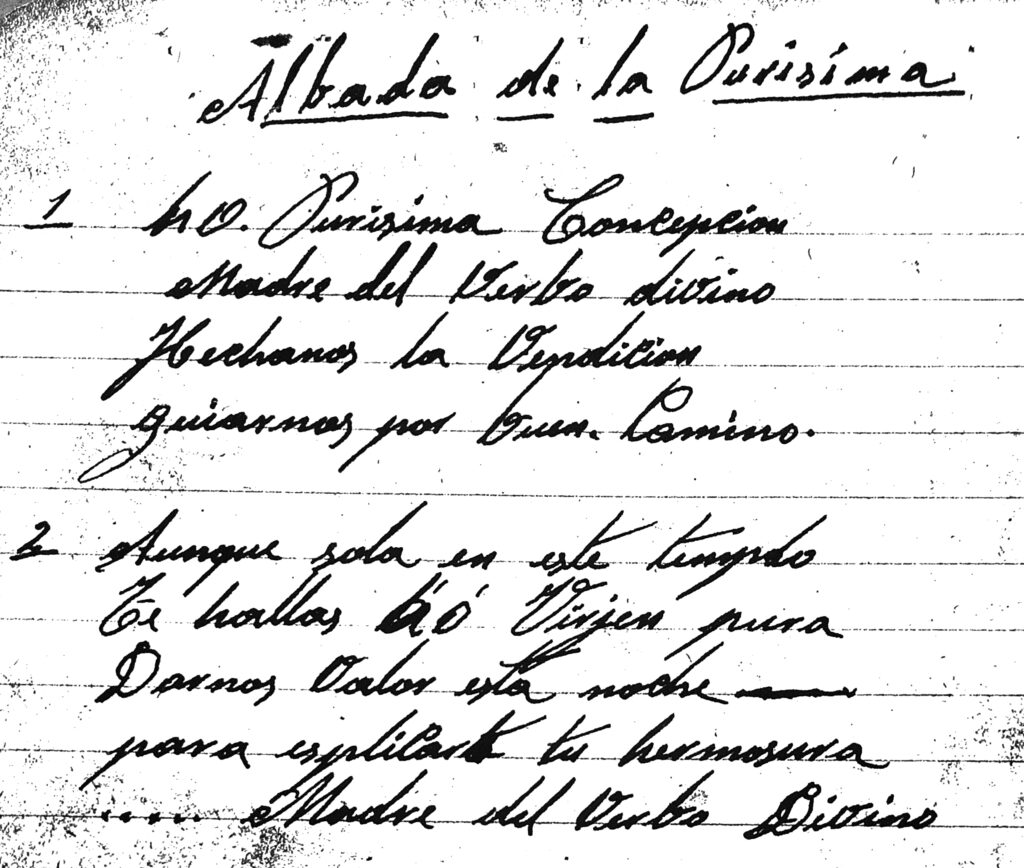 Albada de la Purisima
1 hO. Purisima Concepcion
Madre del Verbo divino
Hechanos la Vendicion
guiarnos por Vuen. Camino.
2 Aunque sola en este templo
Te hallas ó Virjen pura
Darnos Valor esta noche —
para esplicarte tu hermosura
..... Madre del Verbo Divino